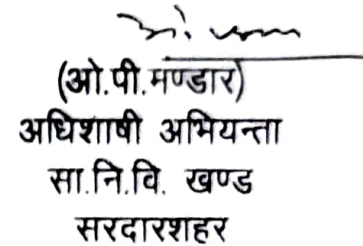 (ओ.पी.मण्डार)
अधिशाषी अभियन्ता
सा.नि.वि. खण्ड
सरदारशहर